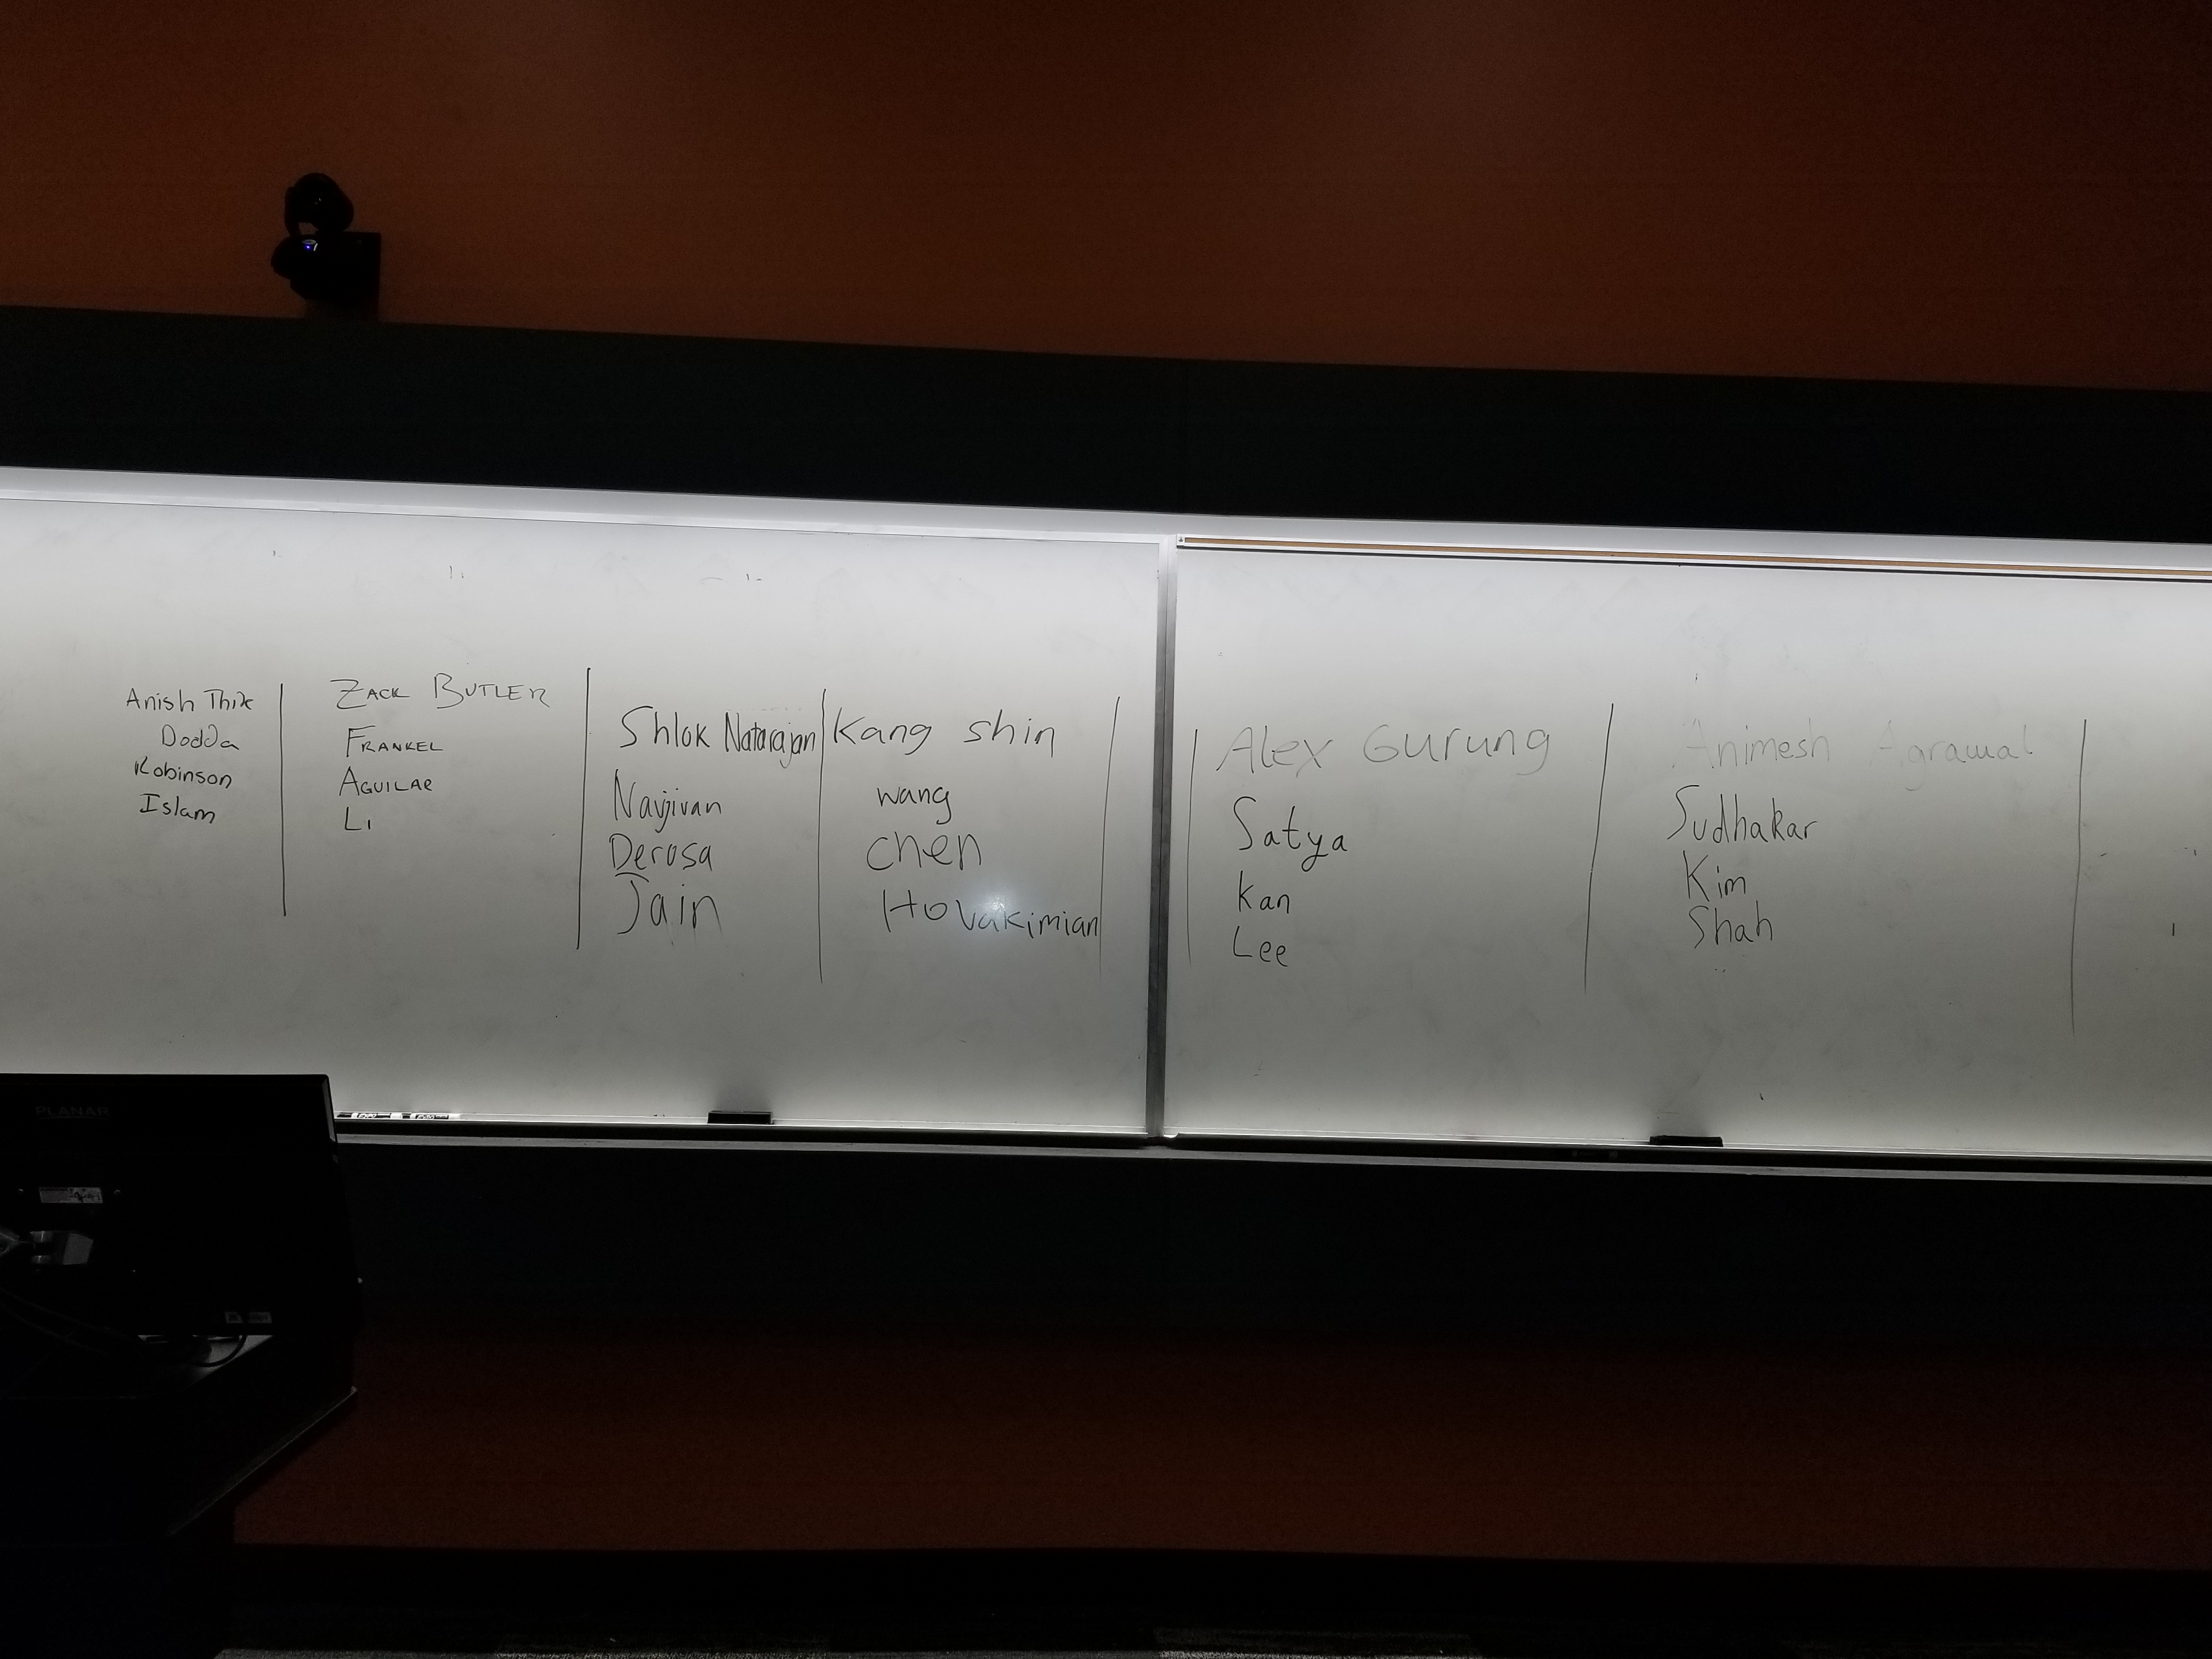 Anish Thix
Dodda
Robinson
Islam
ZACK BUTLER
FRANKEL
AGUILAR
LI
Shlok Natarajan
Navjivan
Derosa
Jain
Kang shin
wang
chen
Hovakimian
Alex Gurung
Satya
Kan
Lee
Animesh Agrawal
Sudhakar
Kim
Shah
PLANAR